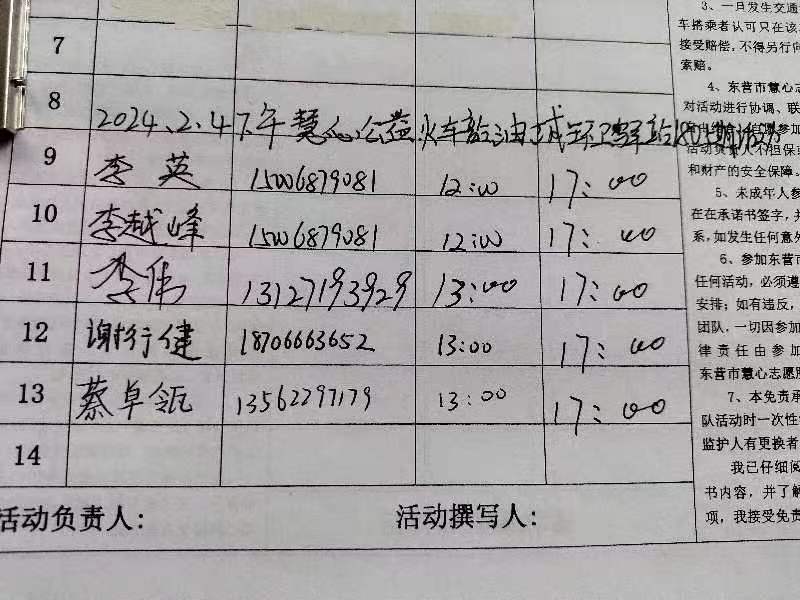 7
8
2024.2.4下午慧心公益火车站油城环卫驿站180期活动
9 李英 15006879081 12:00 17:00
10 李越峰 15006879081 12:00 17:00
11 李伟 13127193929 13:00 17:00
12 谢行健 18706663652 13:00 17:00
13 蔡卓瓴 13562297179 13:00 17:00
14
活动负责人: 活动撰写人:
3、一旦发生交通
车搭乘者认可只在该
接受赔偿,不得另行向
索赔。
4、东营市慧心志
对活动进行协调、联
活动负责人不担保
和财产的安全保障。
5、未成年人参
在在承诺书签字,并
系,如发生任何意外
6、参加东营市
任何活动,必须遵
安排;如有违反,
团队,一切因参加
律责任由参加
东营市慧心志愿
7、本免责承
队活动时一次性
监护人有更换者
我已仔细阅
书内容,并了解
项,我接受免责